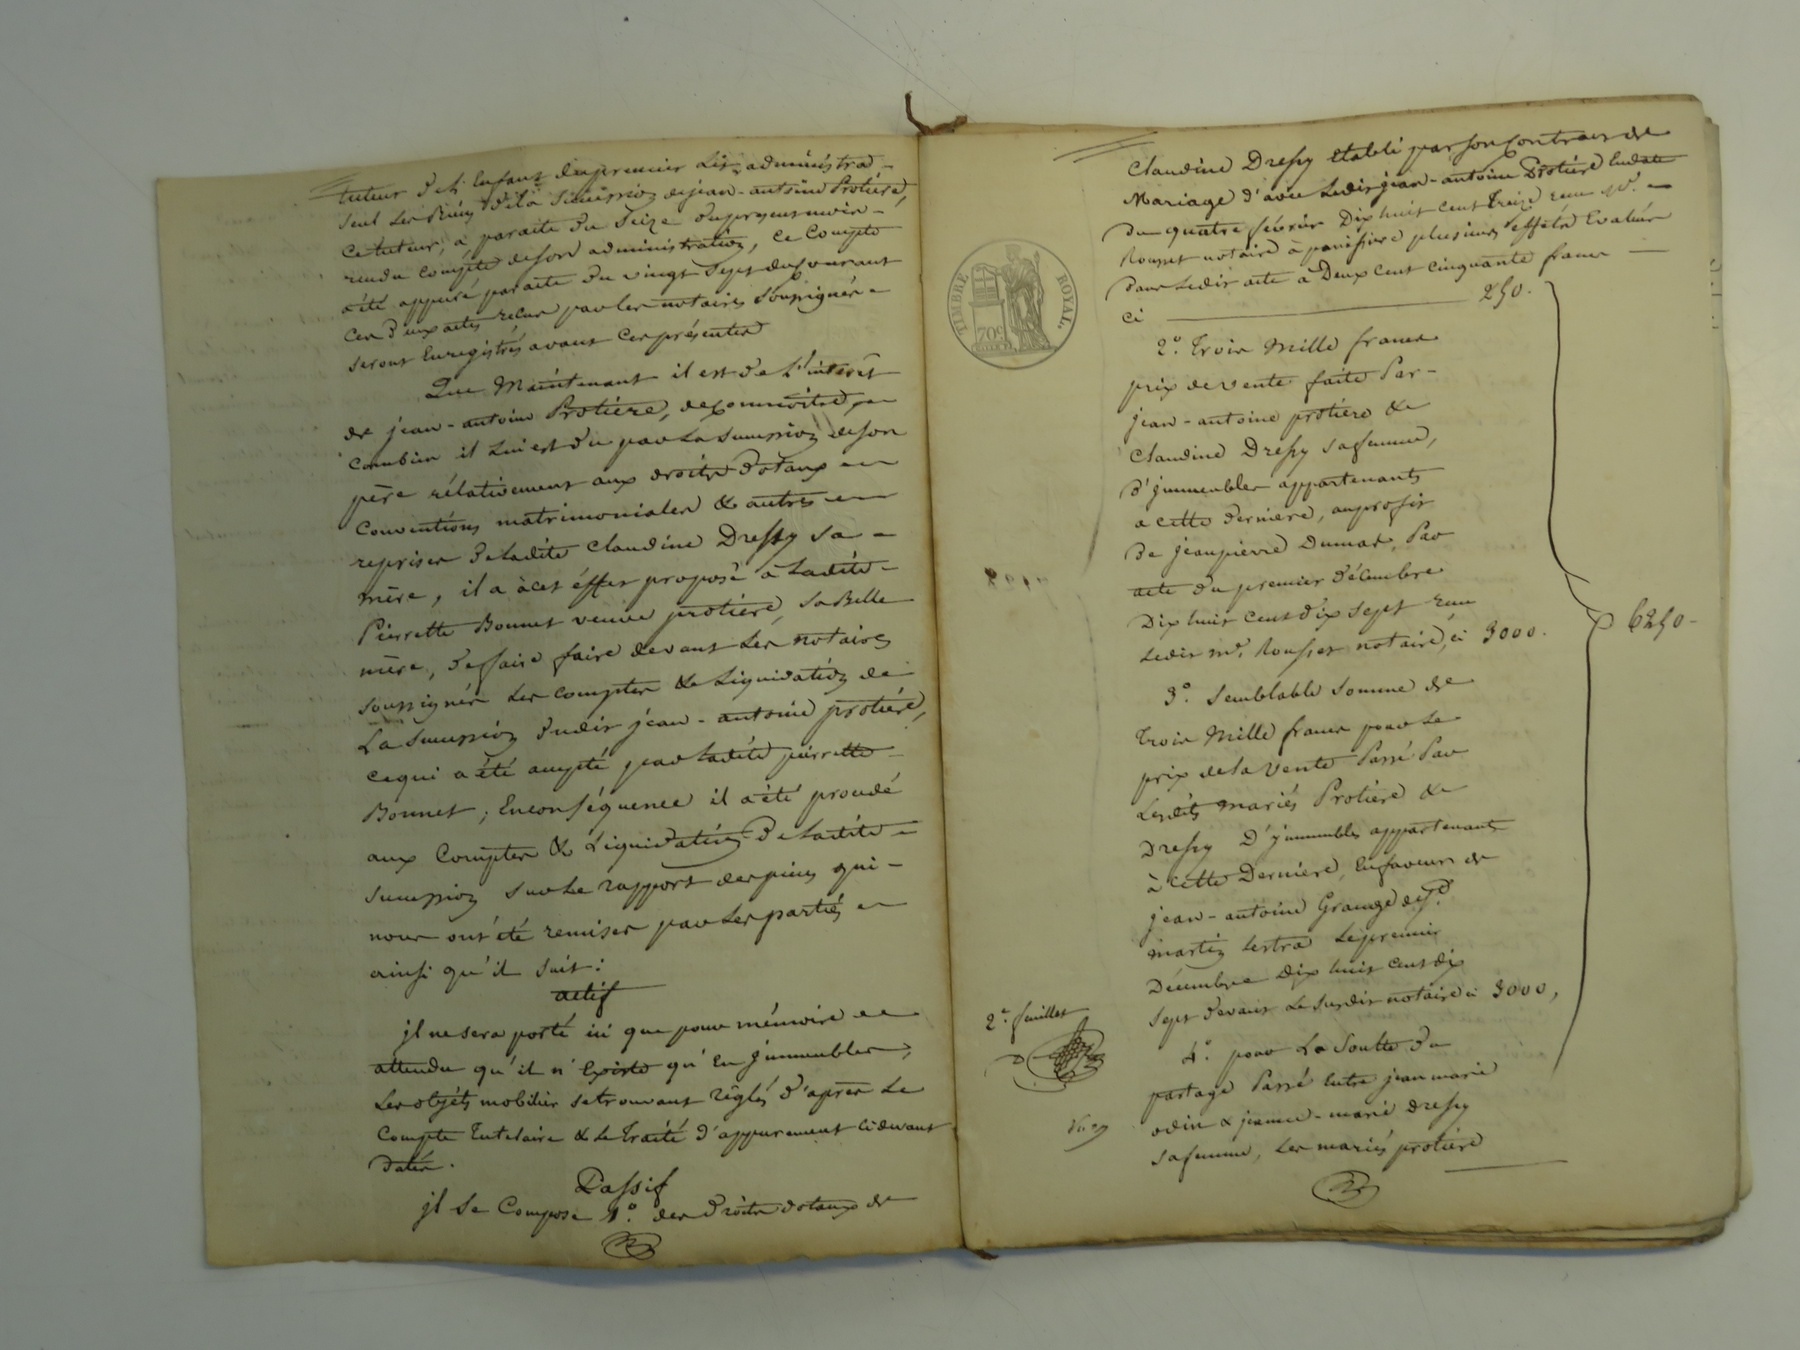 tuteur de l'Enfant du premier Lit, administra-
seul Les Biens de la Succession de jean-antoine Protière,
Ce tuteur, a par acte du Seize du présent mois -
rendu Compte de son administration, Ce Compte
a été appuré par acte du vingt sept du Courant
Ces deux actes reçus par les notaires Soussignés -
seront Enregistrés avant Ces présentes
Que Maintenant il est de l'intérêt
de jean-antoine Protière, de Connoitre
Combien il lui est dû par La Succession de son
père rélativement aux droits Dotaux
Conventions matrimoniales & autres
reprises de Ladite Claudine Dressy Sa
mère, il a à cet éffet proposé à Ladite -
Pierrette Bonnet veuve protière, Sa Belle
mère, de faire faire devant Les notaires
soussignés Les comptes & Liquidation de
La Succession dudit jean-antoine protière,
Ce qui a été accepté par Ladite pierrette
Bonnet; En conséquence il a été procédé
aux Comptes & Liquidation de Ladite
succession sur Le rapport des pièces qui -
nous ont été remises par Les parties
ainsi qu'il Suit:
actif
jl ne sera porté ici que pour mémoire
attendu qu'il n'Existe qu'En jmmeubles,
Les objets mobilier se trouvant réglés d'après Le
Compte Tutelaire & Le Traité d'appurement Ci devant
Datés.
Passif
jl Se Compose 1.° des Droits dotaux de
Claudine Dressy établi par son Contrat de
Mariage d'avec Ledit jean-antoine Protière En date
du quatre février Dix huit cent Treize reçu Me.
Rousset notaire à panissière plusieurs effets Evalués
Dans Ledit acte à Deux Cent Cinquante francs
Ci 250.
2.° Trois Mille francs
prix de vente faite Par-
jean-antoine protière &
Claudine Dressy sa femme,
d'jmmeubles appartenants
a cette dernière, au profit
De jean pierre Dumas, Par
acte du premier décembre
Dix huit cent dix sept reçu
Ledit me. Rousset notaire, ci 3000.
6250-
3.° Semblable Somme de
Trois Mille francs pour Le
prix de la Vente Passé Par
Lesdits mariés Protière &
Dressy D'jmmeubles appartenants
à cette Dernière, En faveur de
jean-antoine Grange de St.
martin Lestra Le premier
Décembre Dix huit Cent dix
sept devant Le Susdit notaire ci 3000,
2.e feuillet
4.° pour La Soulte du
partage Passé Entre jean marie
odin & jeanne-marie Dressy
sa femme, Les mariés protière
TIMBRE ROYAL.
70c